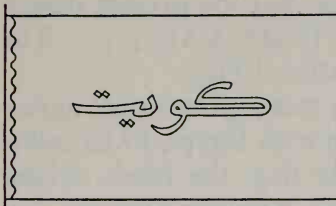 كويت